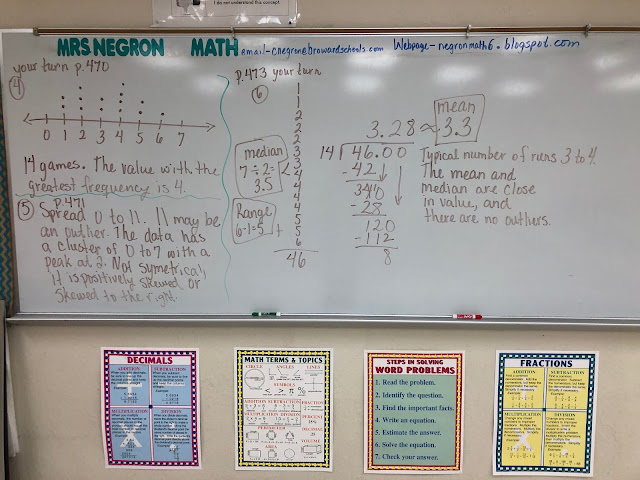 I do not understand this concept.
MRS NEGRON MATH
email-cnegron@browardschools.com Webpage-negronmath6.blogspot.com
your turn p.470
4
0 1 2 3 4 5 6 7
14 games. The value with the
greatest frequency is 4.
5 p.471
Spread 0 to 11. 11 may be
an outlier. The data has
a cluster of 0 to 7 with a
peak at 2. Not symetrical,
it is positively skewed or
skewed to the right.
p.473 your turn
6
1
1
2
2
2
3
3
4
4
4
4
5
5
+ 6
46
median
7÷2=
3.5
<
Range
6-1=5
3.28 ≈
mean
3.3
14 46.00
-42
340
-28
120
-112
8
Typical number of runs 3 to 4.
The mean and
median are close
in value, and
there are no outliers.
DECIMALS
ADDITION SUBTRACTION
MULTIPLICATION DIVISION
MATH TERMS & TOPICS
CIRCLE ANGLES LINES
SYMBOLS
ADDITION SUBTRACTION FRACTION
MULTIPLICATION DIVISION PERCENT
PERIMETER DECIMAL
AREA VOLUME
STEPS IN SOLVING
WORD PROBLEMS
1. Read the problem.
2. Identify the question.
3. Find the important facts.
4. Write an equation.
5. Estimate the answer.
6. Solve the equation.
7. Check your answer.
FRACTIONS
ADDITION SUBTRACTION
MULTIPLICATION DIVISION